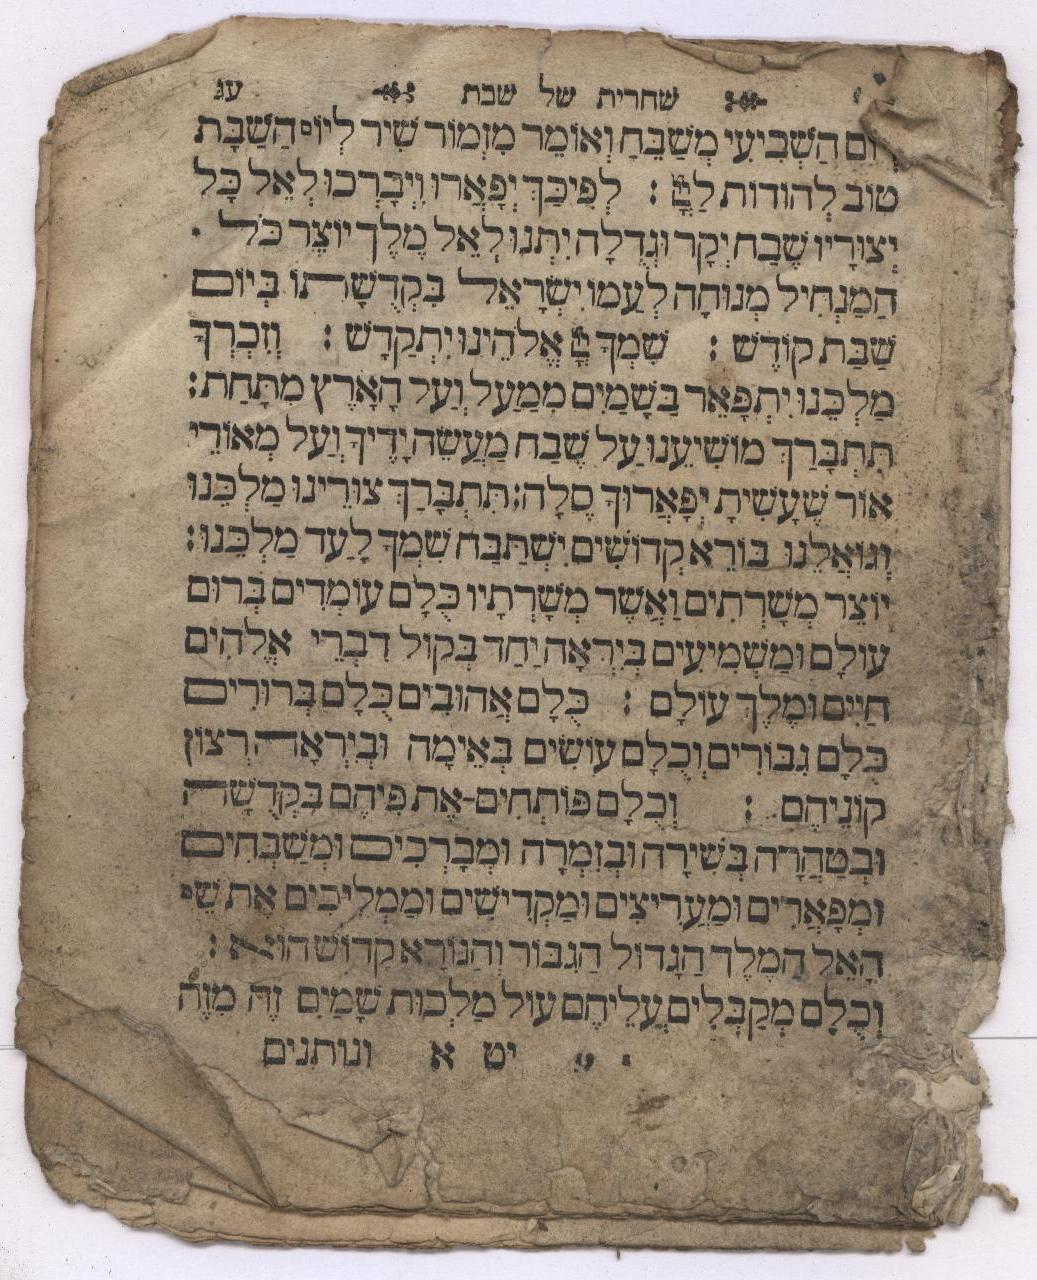 שחרית של שבת עג
יוֹם הַשְּׁבִיעִי מְשַׁבֵּחַ וְאוֹמֵר מִזְמוֹר שִׁיר לְיוֹם הַשַּׁבָּת
טוֹב לְהוֹדוֹת לַיְיָ : לְפִיכַךְ יְפָאֲרוּ וִיבָרְכוּ לְאֵל כָּל
יְצוּרָיו שֶׁבַח יְקָר וּגְדֻלָּה יִתְּנוּ לְאֵל מֶלֶךְ יוֹצֵר כֹּל .
הַמַּנְחִיל מְנוּחָה לְעַמּוֹ יִשְׂרָאֵל בִּקְדֻשָּׁתוֹ בְּיוֹם
שַׁבַּת קוֹדֶשׁ : שִׁמְךָ יְיָ אֱלֹהֵינוּ יִתְקַדָּשׁ : וְזִכְרְךָ
מַלְכֵּנוּ יִתְפָּאֵר בַּשָּׁמַיִם מִמַּעַל וְעַל הָאָרֶץ מִתָּחַת :
תִּתְבָּרַךְ מוֹשִׁיעֵנוּ עַל שֶׁבַח מַעֲשֵׂה יָדֶיךָ וְעַל מְאוֹרֵי
אוֹר שֶׁעָשִׂיתָ יְפָאֲרוּךָ סֶלָה : תִּתְבָּרַךְ צוּרֵינוּ מַלְכֵּנוּ
וְגוֹאֲלֵנוּ בּוֹרֵא קְדוֹשִׁים יִשְׁתַּבַּח שִׁמְךָ לָעַד מַלְכֵּנוּ :
יוֹצֵר מְשָׁרְתִים וַאֲשֶׁר מְשָׁרְתָיו כֻּלָּם עוֹמְדִים בְּרוּם
עוֹלָם וּמַשְׁמִיעִים בְּיִרְאָה יַחַד בְּקוֹל דִּבְרֵי אֱלֹהִים
חַיִּים וּמֶלֶךְ עוֹלָם : כֻּלָּם אֲהוּבִים כֻּלָּם בְּרוּרִים
כֻּלָּם גִּבּוֹרִים וְכֻלָּם עוֹשִׂים בְּאֵימָה וּבְיִרְאָה רְצוֹן
קוֹנֵיהֶם : וְכֻלָּם פּוֹתְחִים אֶת פִּיהֶם בִּקְדֻשָּׁה
וּבְטָהֳרָה בְּשִׁירָה וּבְזִמְרָה וּמְבָרְכִים וּמְשַׁבְּחִים
וּמְפָאֲרִים וּמַעֲרִיצִים וּמַקְדִּישִׁים וּמַמְלִיכִים אֶת שֵׁי
הָאֵל הַמֶּלֶךְ הַגָּדוֹל הַגִּבּוֹר וְהַנּוֹרָא קָדוֹשׁ הוּא :
וְכֻלָּם מְקַבְּלִים עֲלֵיהֶם עוֹל מַלְכוּת שָׁמַיִם זֶה מִזֶּה
יט א ונותנים